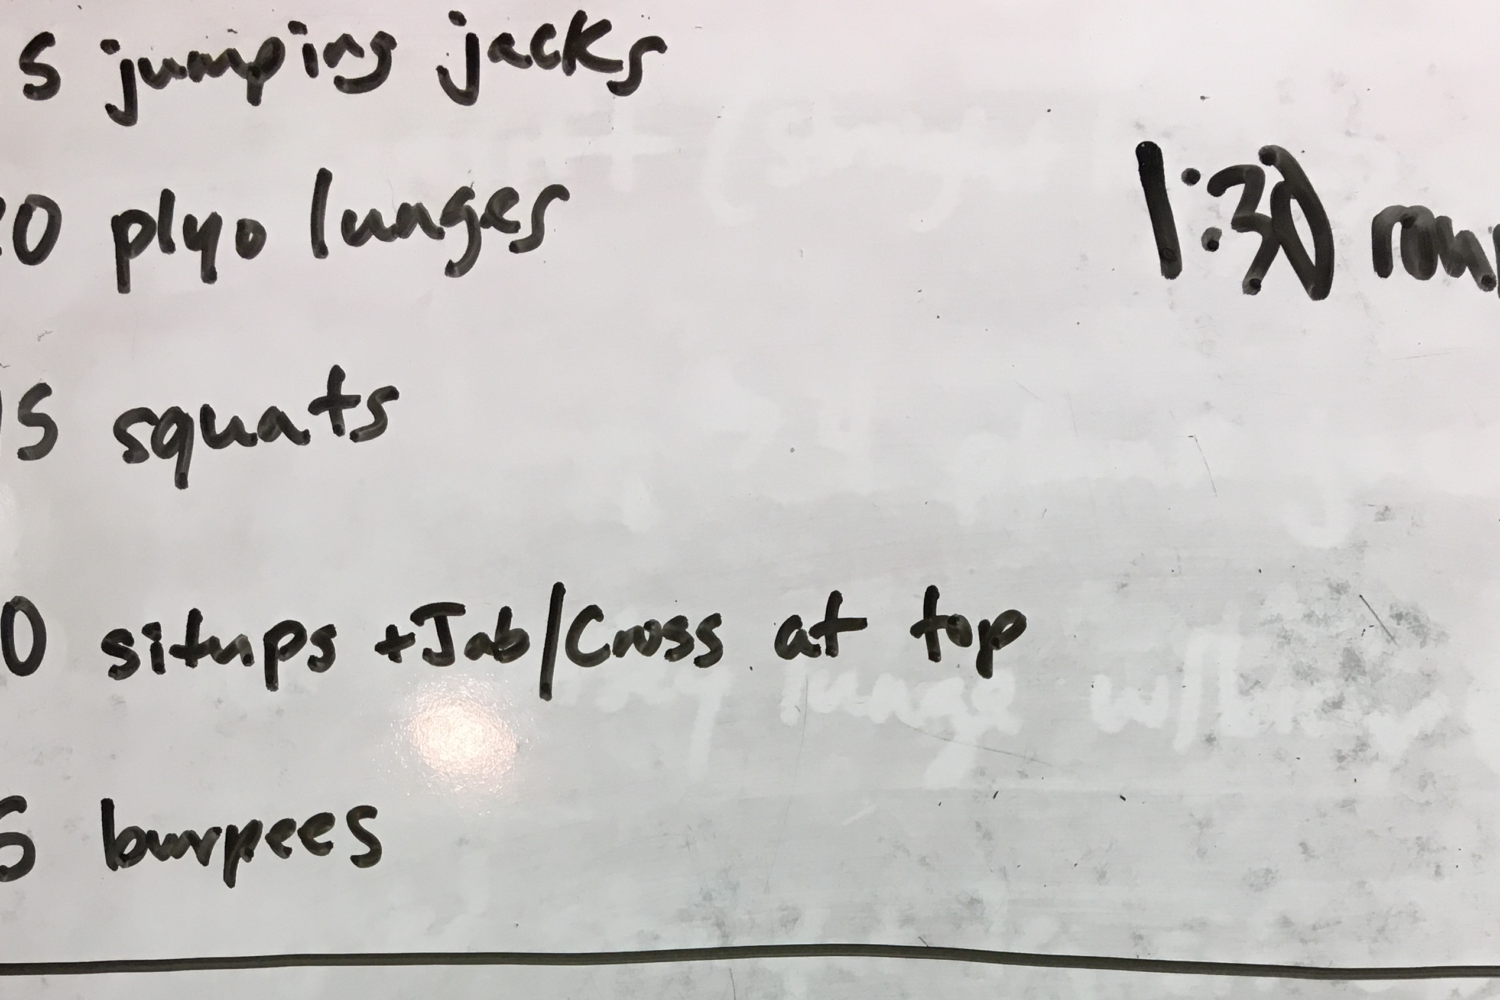 5 jumping jacks
20 plyo lunges
1:30
15 squats
0 situps +Jab/Cross at top
5 burpees
lunge w/